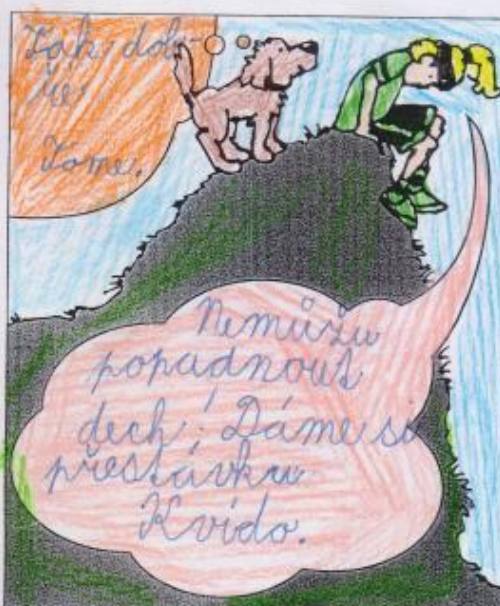 Tak dob-
ře
Tome.
Nemůžu
popadnout
dech! Dáme si
přestávku
Kvído.